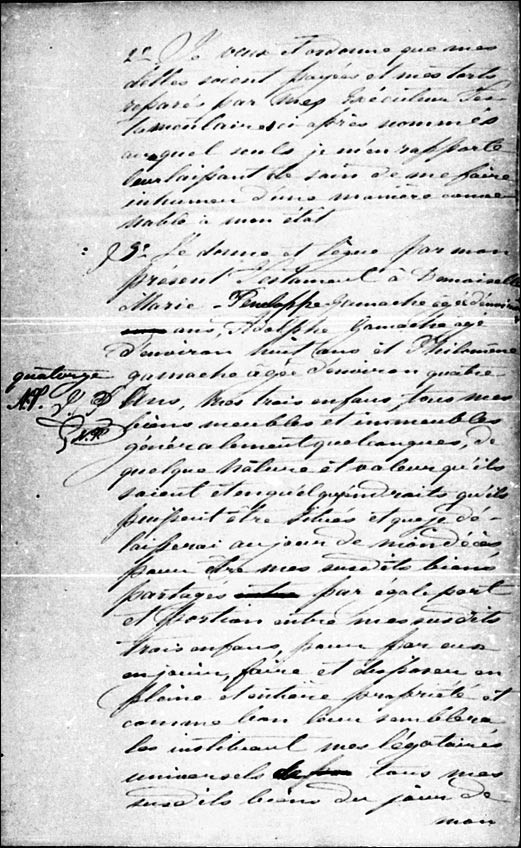 2o Je veux et ordonne que mes
dettes soient payées et mes torts
reparés par mes Exécuteur Tes-
tamentaires ci après nommés
auxquel seuls je m'en rapporte
leur laissant le soin de me faire
inhumer d'une manière conve
nable à mon état
3o Je donne et lègue par mon
présent Testament à Demoiselle
Marie Peneloppe Gamache agée d'environ
ans, Adolphe Gamache agé
d'environ huit ans et Philomène
quatorze
Gamache agée d'environ quatre
N.P.
Ans, mes trois enfans, tous mes
N.P.
biens meubles et immeubles
généralement quelconques, de
quelque nature et valeur qu'ils
soient et en quelqu'endroits qu'ils
puissent être situés et que je dé-
laisserai au jour de mon décès
pour être mes susdits biens
partagés par égale part
et portion entre mes susdits
trois enfans, pour par eux
en jouir, faire et disposer en
pleine et entière propriété et
comme bon leur semblera
les instituant mes légataires
universels tous mes
susdits biens du jour de
mon